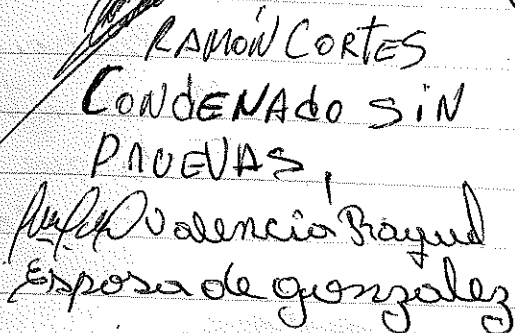 RAMÓN CORTES
CONDENADO SIN
PRUEVAS,
Valencia Raquel
Esposa de gonzalez